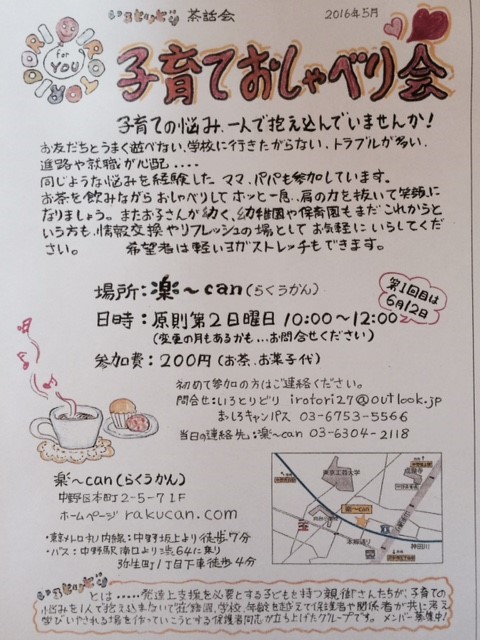 いろとりどり 茶話会 2016年5月
IROTORIDORI
for YOU
子育ておしゃべり会
子育ての悩み、一人で抱え込んでいませんか!
お友だちとうまく遊べない、学校に行きたがらない、トラブルが多い、
進路や就職が心配・・・・
同じような悩みを経験した ママ、パパも参加しています。
お茶を飲みながら おしゃべりして ホッと一息、肩の力を抜いて笑顔に
なりましょう。またお子さんが幼く、幼稚園や保育園もまだこれからと
いう方も、情報交換やリフレッシュの場として お気軽に いらしてくだ
さい。 希望者は軽いヨガストレッチもできます。
場所:楽〜can(らくうかん)
第1回目は
6月12日
日時:原則第2日曜日 10:00〜12:00
(変更の月もあるかも…お問合せください)
参加費:200円(お茶、お菓子代)
初めて参加の方はご連絡ください。
問合せ:いろとりどり irotori27@outlook.jp
ましろキャンパス 03-6753-5566
当日の連絡先:楽〜can 03-6304-2118
楽〜can(らくうかん)
中野区本町2-5-7 1F
ホームページ rakucan.com
・東京メトロ丸ノ内線:中野坂上より徒歩7分
・バス:中野駅南口より渋64に乗り
弥生町1丁目下車徒歩4分
東京工芸大学
楽〜can
神田川
いろとりどり とは・・・・・発達上支援を必要とする子どもを持つ親御さんたちが、子育ての
悩みを1人で抱え込まないで在籍園、学校、年齢を越えて保護者や関係者が共に考え
学びいやされる場を作っていこうとする保護者同志が立ち上げたグループです。メンバー募集中!